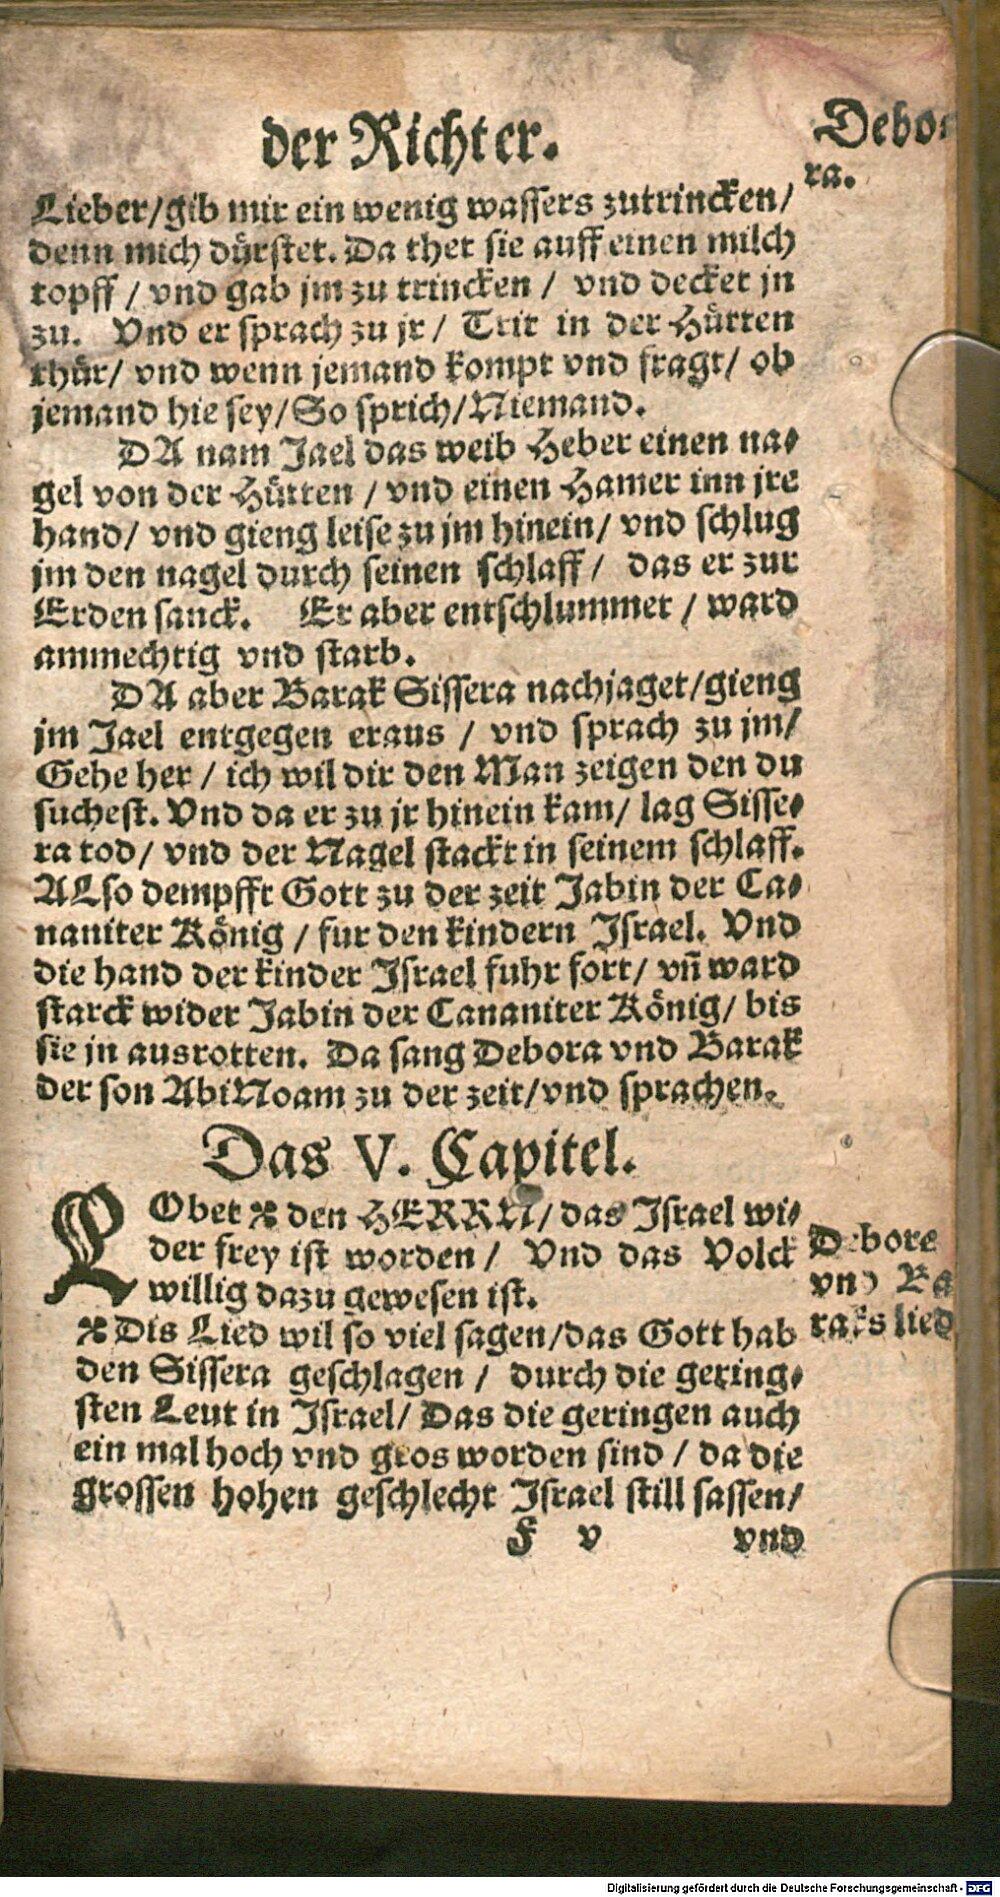 der Richter.
Debo
ra.
Lieber/gib mir ein wenig wassers zutrincken/
denn mich dürstet. Da thet sie auff einen milch
topff / vnd gab jm zu trincken / vnd decket jn
zu. Vnd er sprach zu jr / Trit in der Hütten
thür/ vnd wenn jemand kompt vnd fragt/ ob
jemand hie sey/So sprich/Niemand.
DA nam Jael das weib Heber einen na⸗
gel von der Hütten / vnd einen Hamer inn jre
hand/ vnd gieng leise zu jm hinein/ vnd schlug
jm den nagel durch seinen schlaff / das er zur
Erden sanck. Er aber entschlummet / ward
ammechtig vnd starb.
DA aber Barak Sissera nachjaget/gieng
jm Jael entgegen eraus / vnd sprach zu jm/
Gehe her / ich wil dir den Man zeigen den du
suchest. Vnd da er zu jr hinein kam/ lag Sisse⸗
ra tod/ vnd der Nagel stackt in seinem schlaff.
ALso dempfft Gott zu der zeit Jabin der Ca⸗
naniter König / fur den kindern Israel. Vnd
die hand der kinder Israel fuhr fort/ vñ ward
starck wider Jabin der Cananiter König/ bis
sie jn ausrotten. Da sang Debora vnd Barak
der son AbiNoam zu der zeit/vnd sprachen.
Das V. Capitel.
LObet ✠ den HERRN/ das Israel wi⸗
der frey ist worden / Vnd das Volck
willig dazu gewesen ist.
Debore
vnd Ba
raks lied
✠ Dis Lied wil so viel sagen/das Gott hab
den Sissera geschlagen / durch die gering⸗
sten Leut in Israel/ Das die geringen auch
ein mal hoch vnd gros worden sind / da die
grossen hohen geschlecht Israel still sassen/
F v vnd
Digitalisierung gefördert durch die Deutsche Forschungsgemeinschaft - DFG